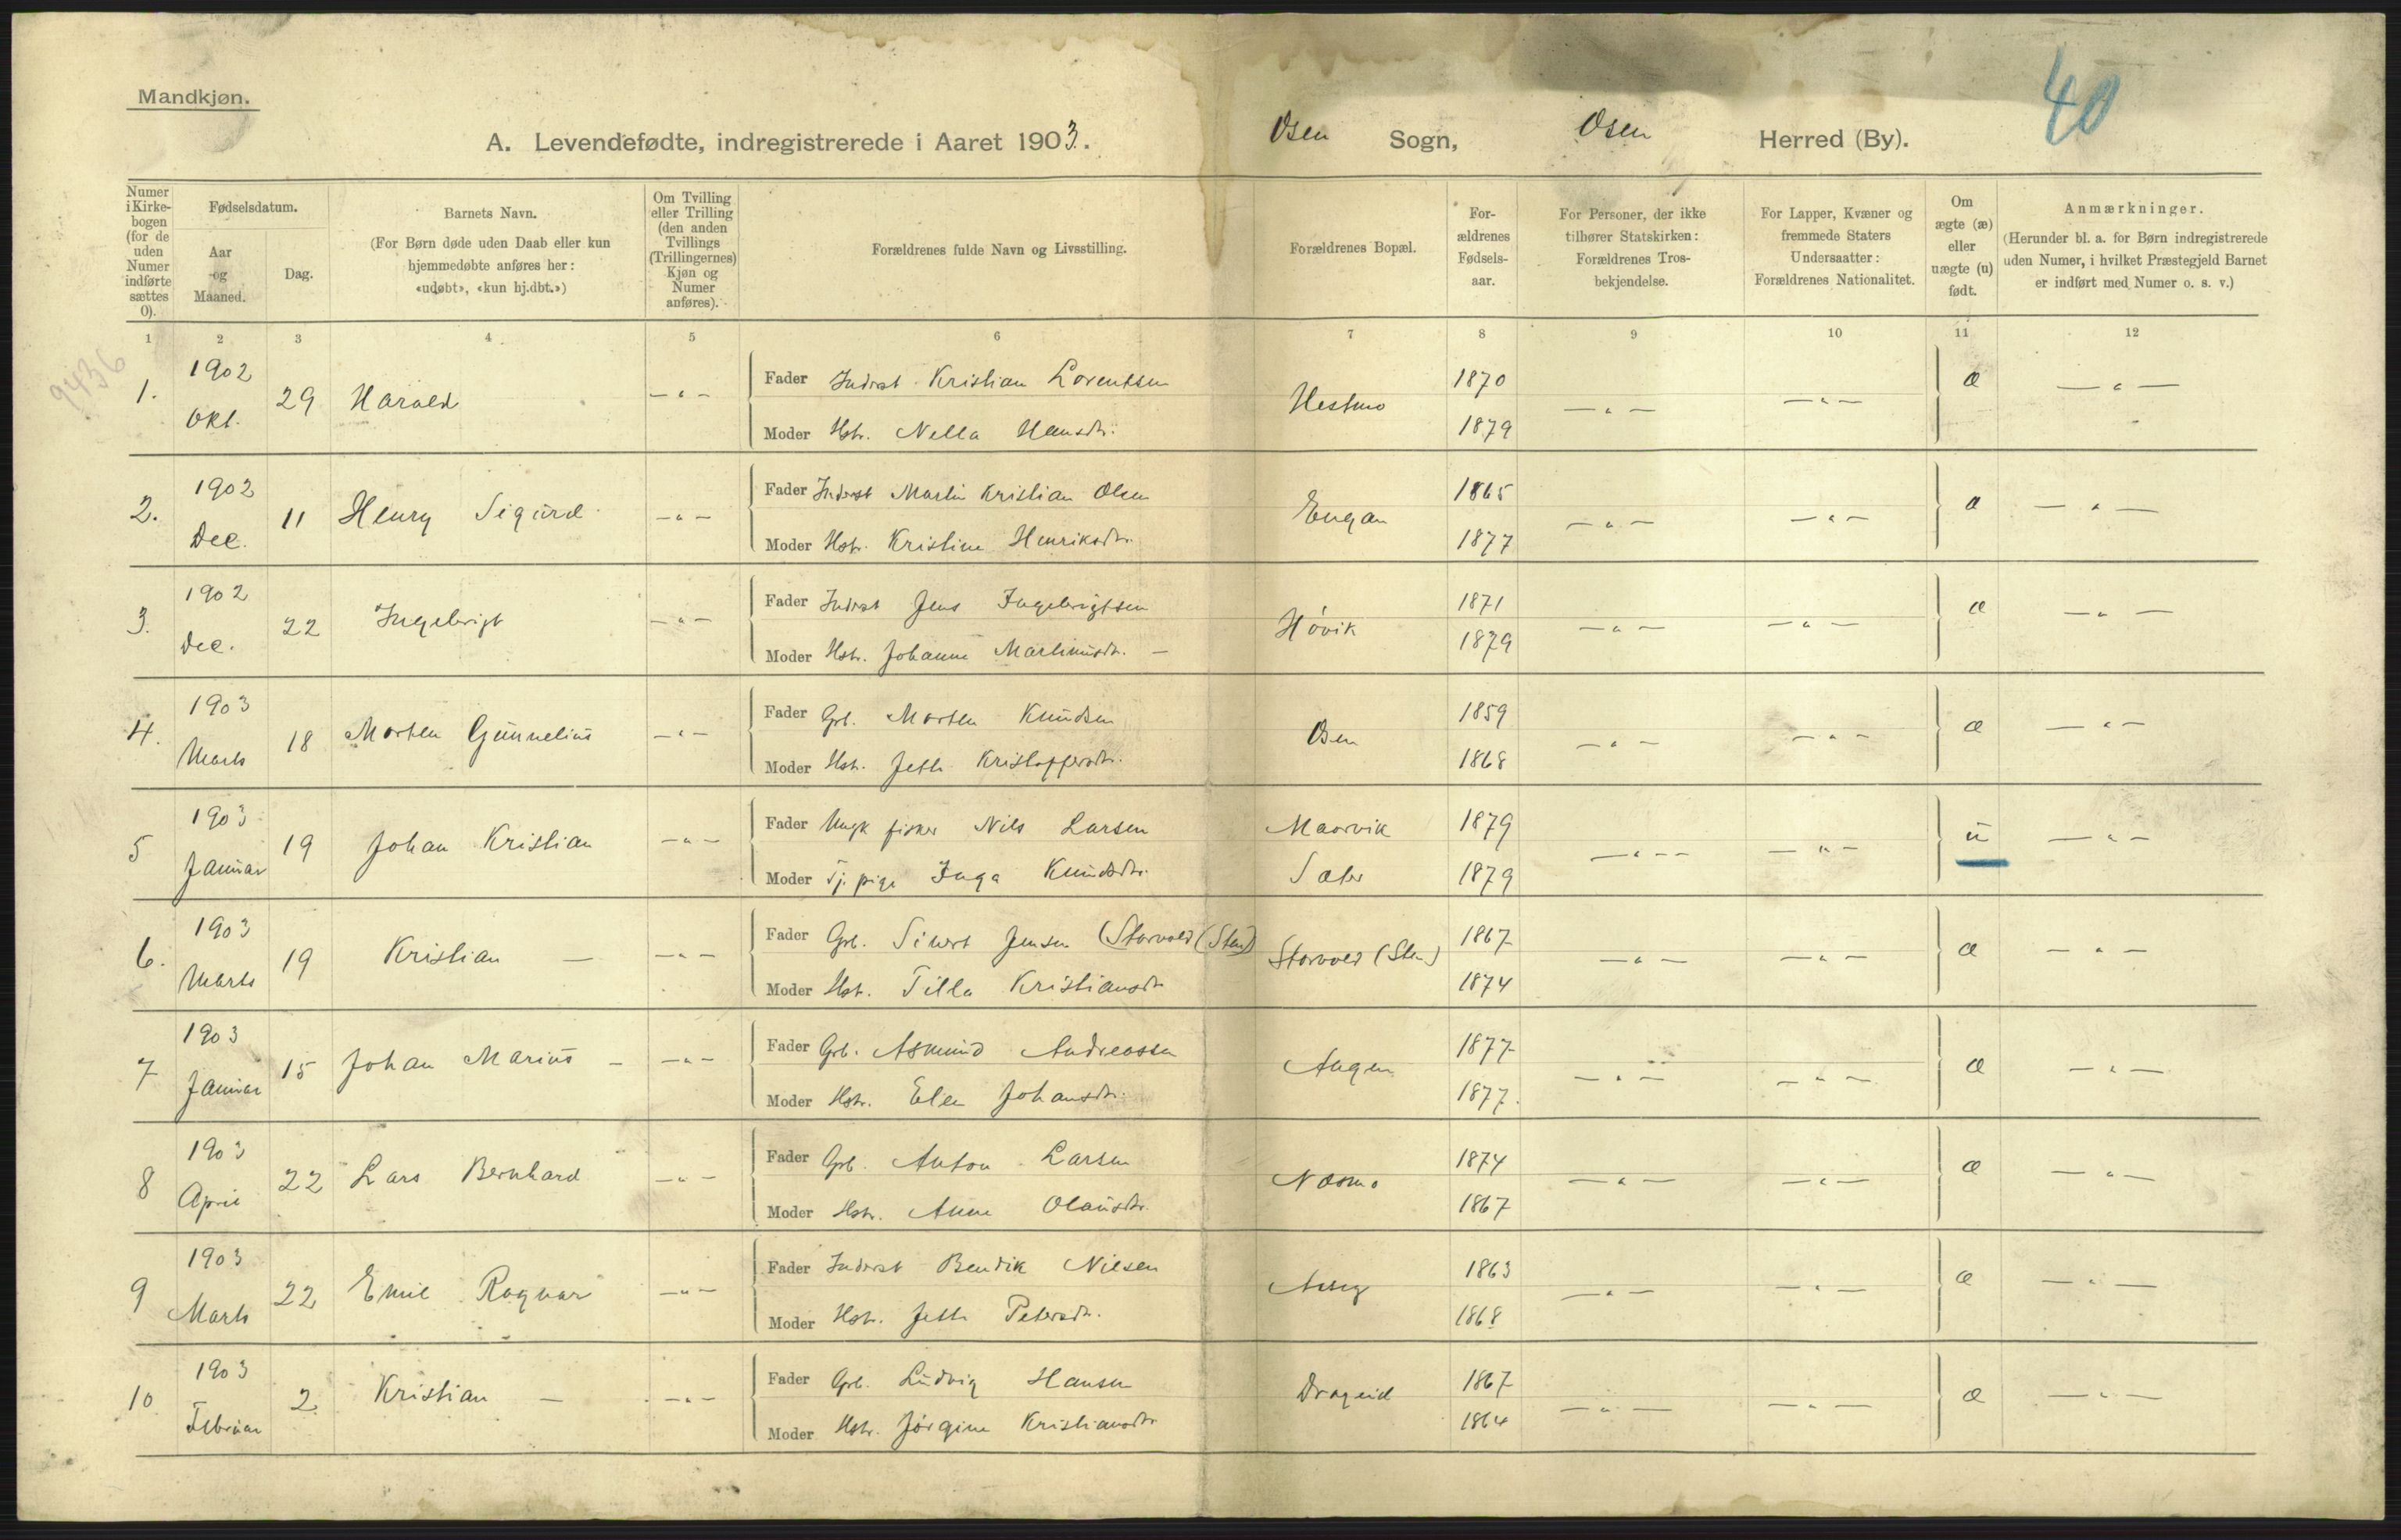 Mandkjøn.
40
A. Levendefødte, indregistrerede i Aaret 1903.
Osen Sogn, Osen Herred (By).
Numer i Kirkebogen (for de uden Numer indførte sættes 0).
Fødselsdatum.
Aar og Maaned.
Dag.
Barnets Navn.
(For Børn døde uden Daab eller kun hjemmedøbte anføres her: «udøbt», «kun hj.dbt.»)
Om Tvilling eller Trilling (den anden Tvillings (Trillingernes) Kjøn og Numer anføres).
Forældrenes fulde Navn og Livsstilling.
Forældrenes Bopæl.
Forældrenes Fødselsaar.
For Personer, der ikke tilhører Statskirken: Forældrenes Trosbekjendelse.
For Lapper, Kvæner og fremmede Staters Undersaatter: Forældrenes Nationalitet.
Om ægte (æ) eller uægte (u) født.
Anmærkninger.
(Herunder bl. a. for Børn indregistrerede uden Numer, i hvilket Præstegjeld Barnet er indført med Numer o. s. v.)
1 2 3 4 5 6 7 8 9 10 11 12
9436
1. 1902 Okt. 29 Harald — " —
Fader Inderst Kristian Lorentsen Hestmo 1870 — " — — " — æ — " —
Moder Hstr. Nella Hansdtr. 1879
2. 1902 Dec. 11 Henry Sigurd — " —
Fader Inderst Martin Kristian Olsen Engan 1865 — " — — " — æ — " —
Moder Hstr. Kristine Henriksdtr. 1877
3. 1902 Dec. 22 Ingebrigt — " —
Fader Inderst Jens Ingebrigtsen Høvik 1871 — " — — " — æ — " —
Moder Hstr. Johanne Martinusdtr. — 1879
4. 1903 Marts 18 Morten Gunnelius — " —
Fader Grb. Morten Knudsen Osen 1859 — " — — " — æ — " —
Moder Hst. Jette Kristoffersdtr. 1868
5 1903 Januar 19 Johan Kristian — " —
Fader Ungk fisker Nils Larsen Maarvik 1879 — " — — — " — u — " —
Moder Tj. pige Inga Knudsdtr. Sæter 1879
6. 1903 Marts 19 Kristian — — " —
Fader Grb. Sivert Jensen (Storvold (Sten) Storvold (Sten) 1867 — " — — " — æ — " —
Moder Hst. Tilla Kristiansdtr 1874
7 1903 Januar 15 Johan Marius — — " —
Fader Grb. Asmund Andreassen Angen 1877 — " — — " — æ — " —
Moder Hstr. Elen Johansdtr. 1877.
8 1903 April 22 Lars Bernhard — " —
Fader Grb. Anton Larsen Næsmo 1874 — " — — " — æ — " —
Moder Hstr. Anne Olausdtr. 1867
9 1903 Marts 22 Emil Ragnar — " —
Fader Inderst Bendik Nilsen 1863 — " — — " — æ — " —
Moder Hstr. Jette Petersdtr. 1868
10 1903 Februar 2. Kristian — — " —
Fader Grb. Ludvig Hansen Drageid 1867 — " — — " — æ — " —
Moder Hstr. Jørgine Kristiansdtr 1864